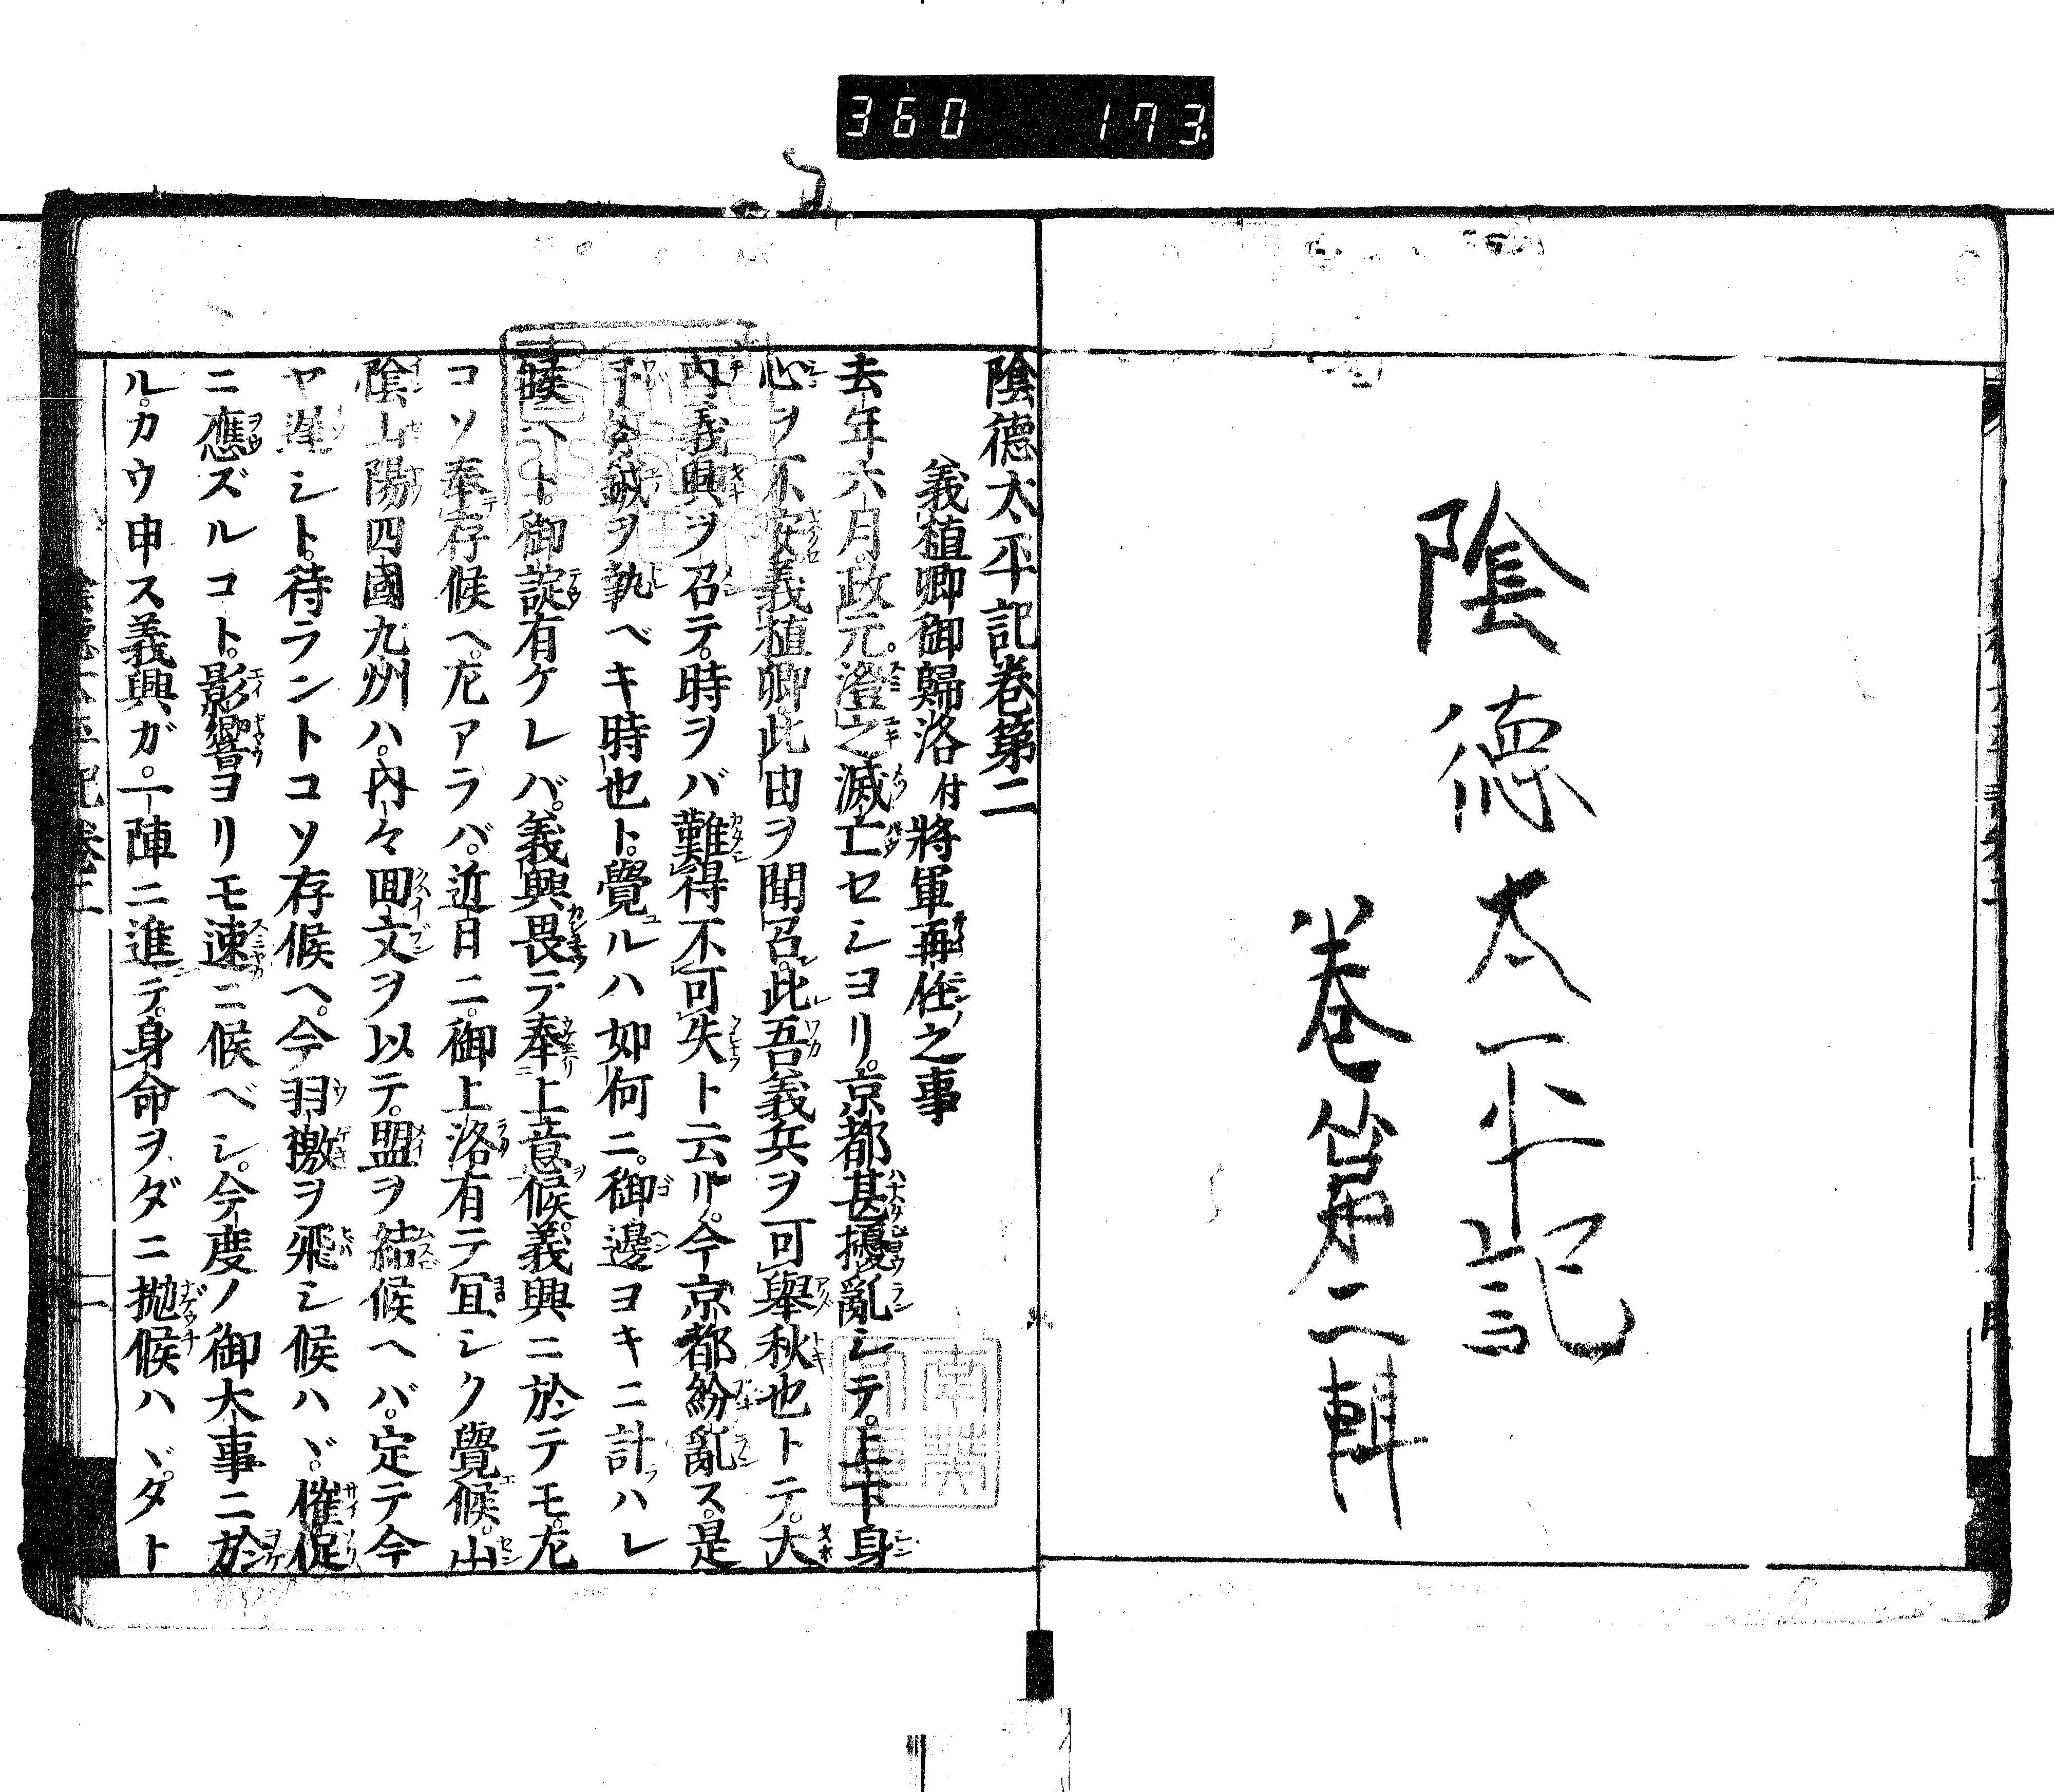 360 173
陰德太平記
卷第二輯
陰德太平記卷第二
義植卿御歸洛付將軍再任之事
去年六月政元。澄之滅亡セシヨリ。京都甚擾亂シテ。上下身
心ヲ不安義植卿此由ヲ聞召。此吾義兵ヲ可擧秋也トテ。大
内義興ヲ召テ。時ヲバ難得不可失ト云リ。今京都紛亂ス。是
ヲ執ベキ時也ト。覺ルハ如何ニ。御邊ヨキニ計ハレ
候ヘト。御諚有ケレバ。義興畏テ奉上意候。義興ニ於テモ。左
コソ奉存候ヘ。左アラバ。近日ニ。御上洛有テ宜シク覺候。山
陰山陽四國九州ハ。内々囬文ヲ以テ。盟ヲ結候ヘバ。定テ今
ヤ遲シト。待ラントコソ存候ヘ。今羽檄ヲ飛シ候ハヾ。催促
ニ應ズルコト。影響ヨリモ速ニ候ベシ。今度ノ御大事ニ於
ル。カウ申ス義興ガ。一陣ニ進テ。身命ヲダニ抛候ハヾ。タト